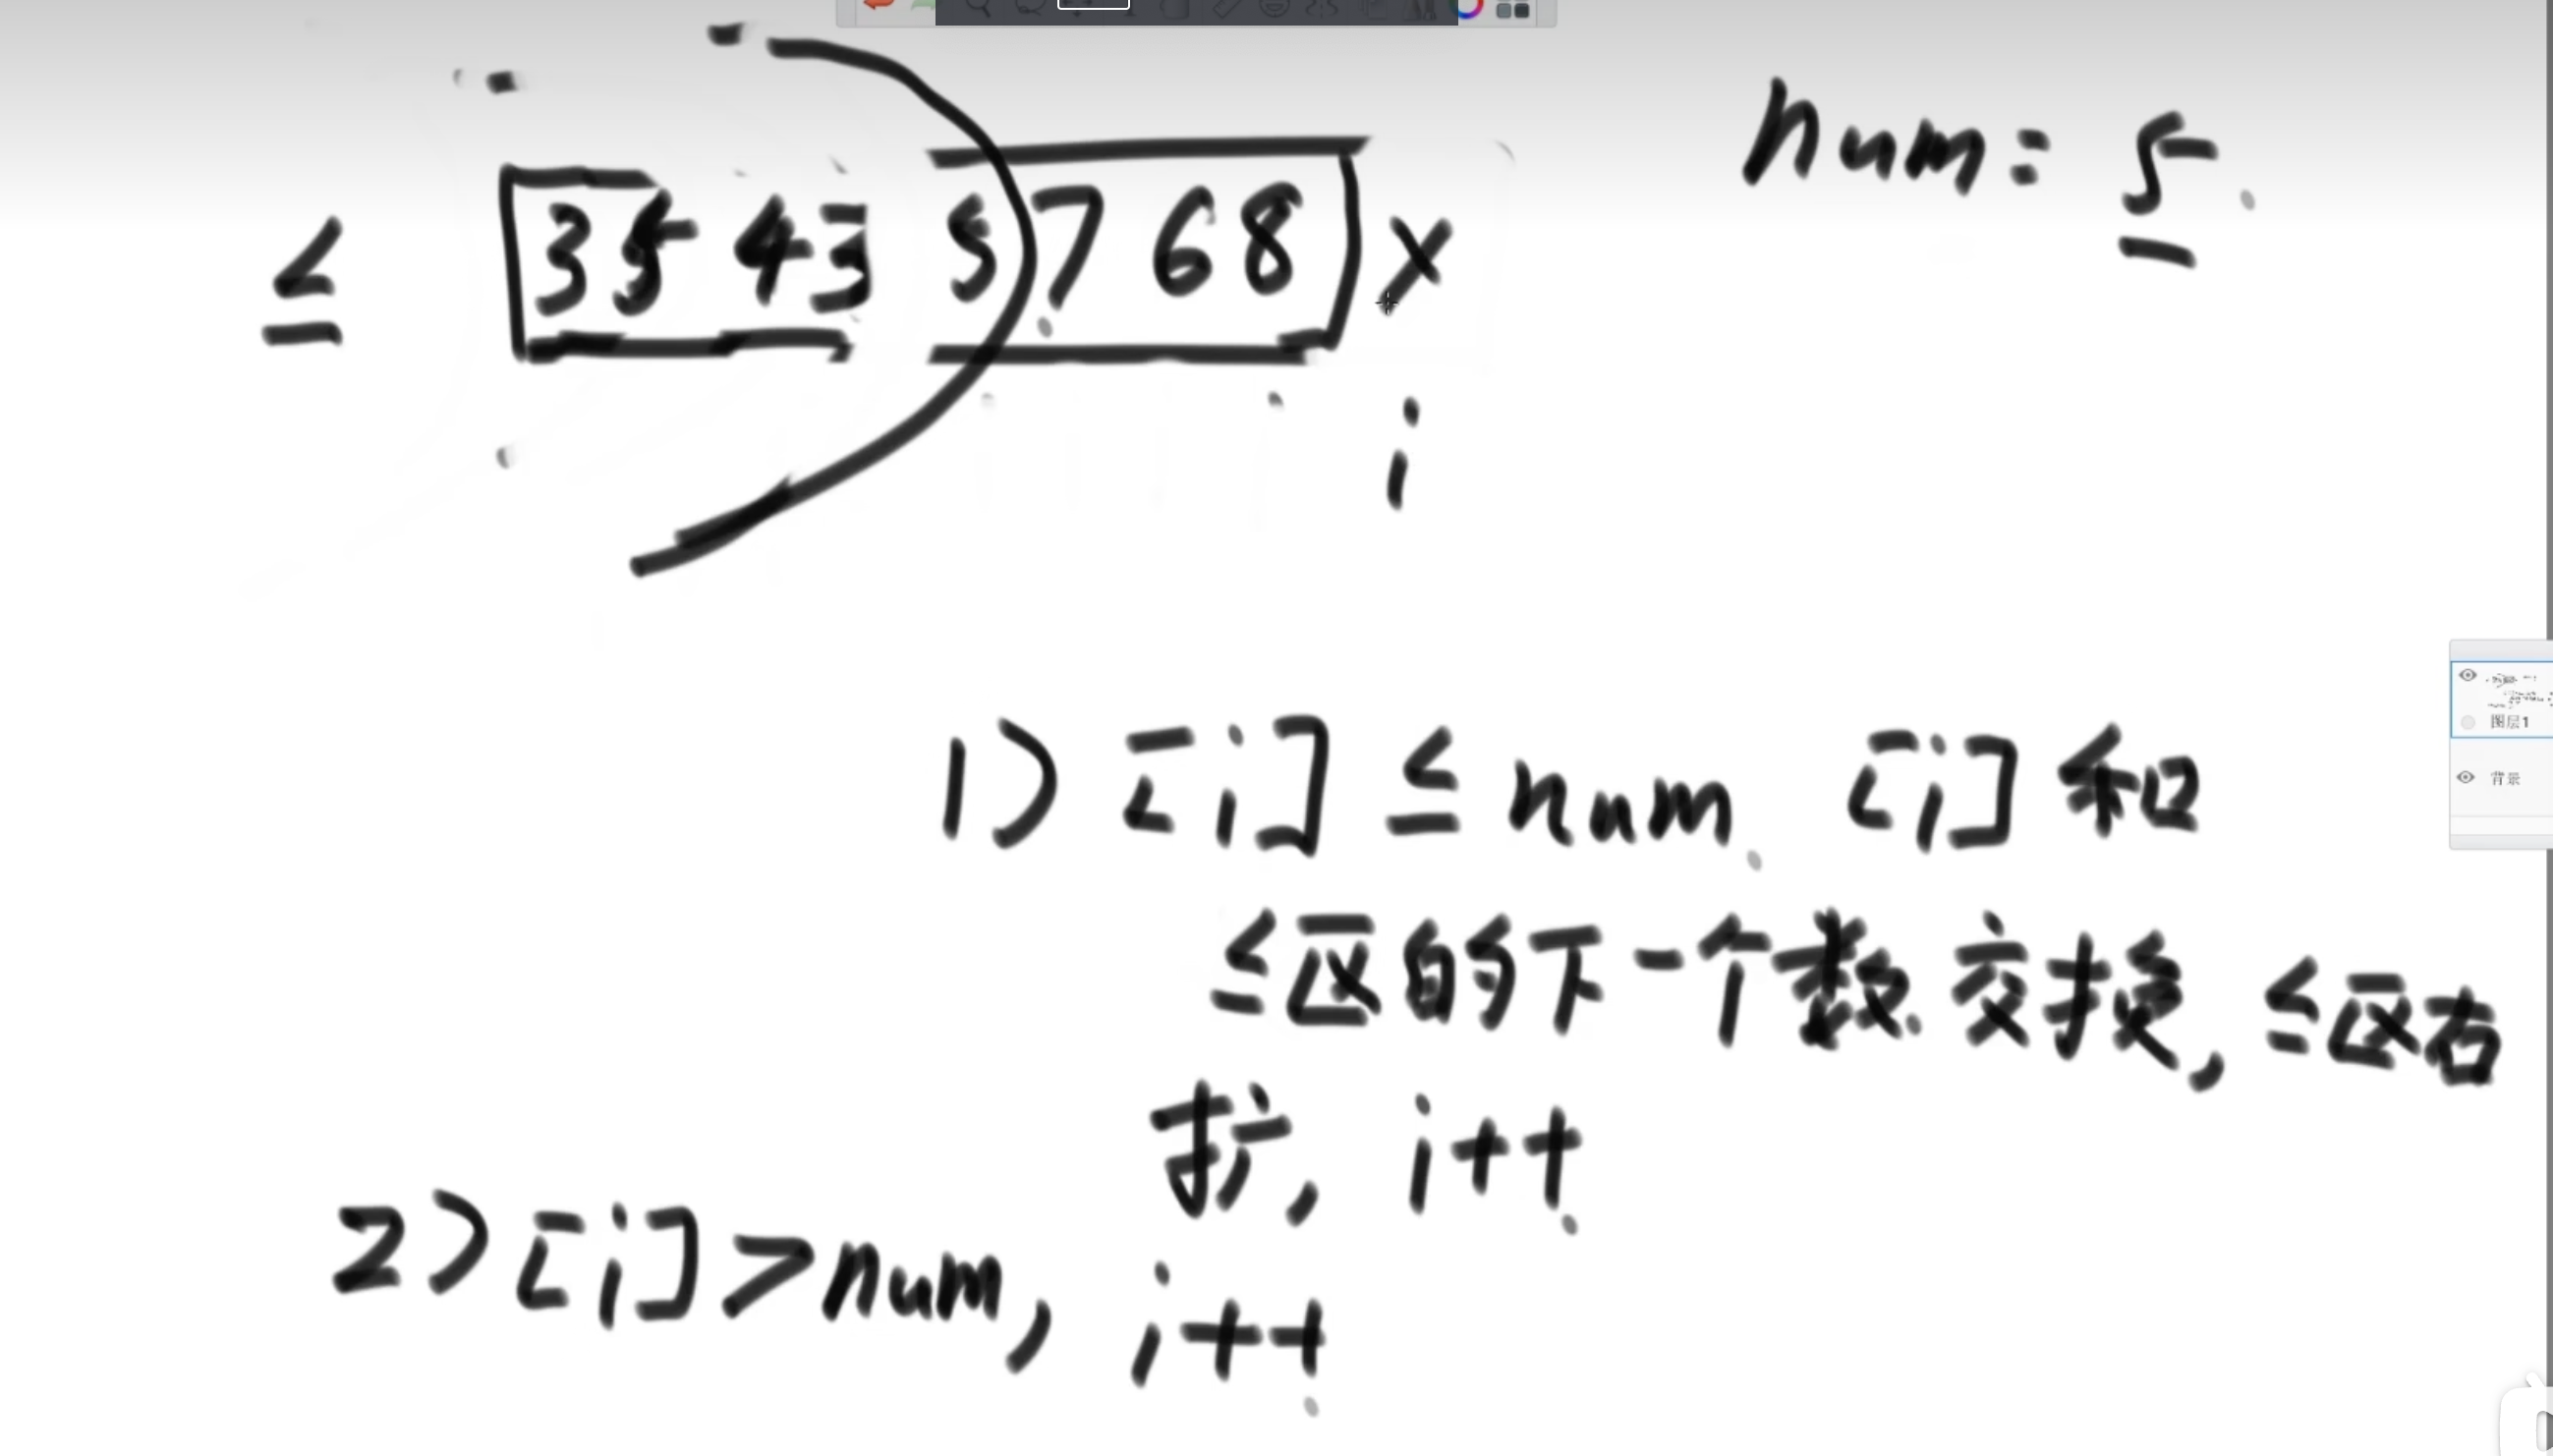 num = 5
≤ [3 5 4 3 5 7 6 8] X
i
1) [i] ≤ num [i] 和
≤区的下一个数交换, ≤区右
扩, i++
2) [i] > num, i++
图层1
背景